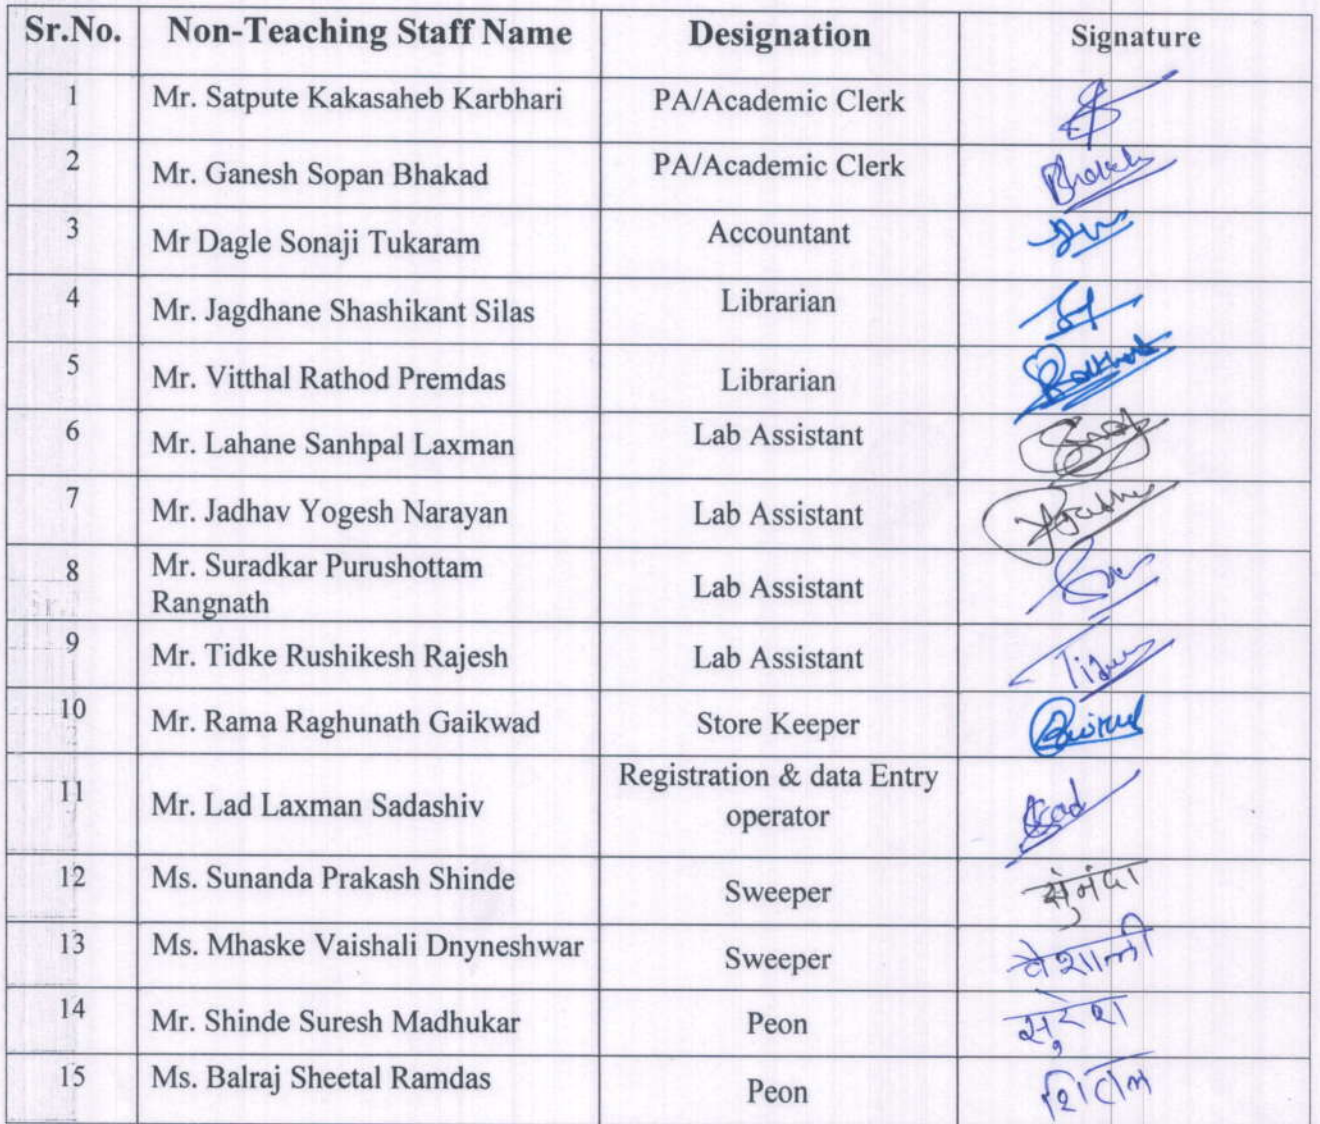 Sr.No. Non-Teaching Staff Name Designation Signature
1 Mr. Satpute Kakasaheb Karbhari PA/Academic Clerk
2 Mr. Ganesh Sopan Bhakad PA/Academic Clerk
3 Mr Dagle Sonaji Tukaram Accountant
4 Mr. Jagdhane Shashikant Silas Librarian
5 Mr. Vitthal Rathod Premdas Librarian
6 Mr. Lahane Sanhpal Laxman Lab Assistant
7 Mr. Jadhav Yogesh Narayan Lab Assistant
8 Mr. Suradkar Purushottam
Rangnath Lab Assistant
9 Mr. Tidke Rushikesh Rajesh Lab Assistant
10 Mr. Rama Raghunath Gaikwad Store Keeper
Registration & data Entry
11 Mr. Lad Laxman Sadashiv
operator
12 Ms. Sunanda Prakash Shinde Sweeper सुनंदा
13 Ms. Mhaske Vaishali Dnyneshwar Sweeper वैशाली
14 Mr. Shinde Suresh Madhukar Peon सुरेश
15 Ms. Balraj Sheetal Ramdas Peon